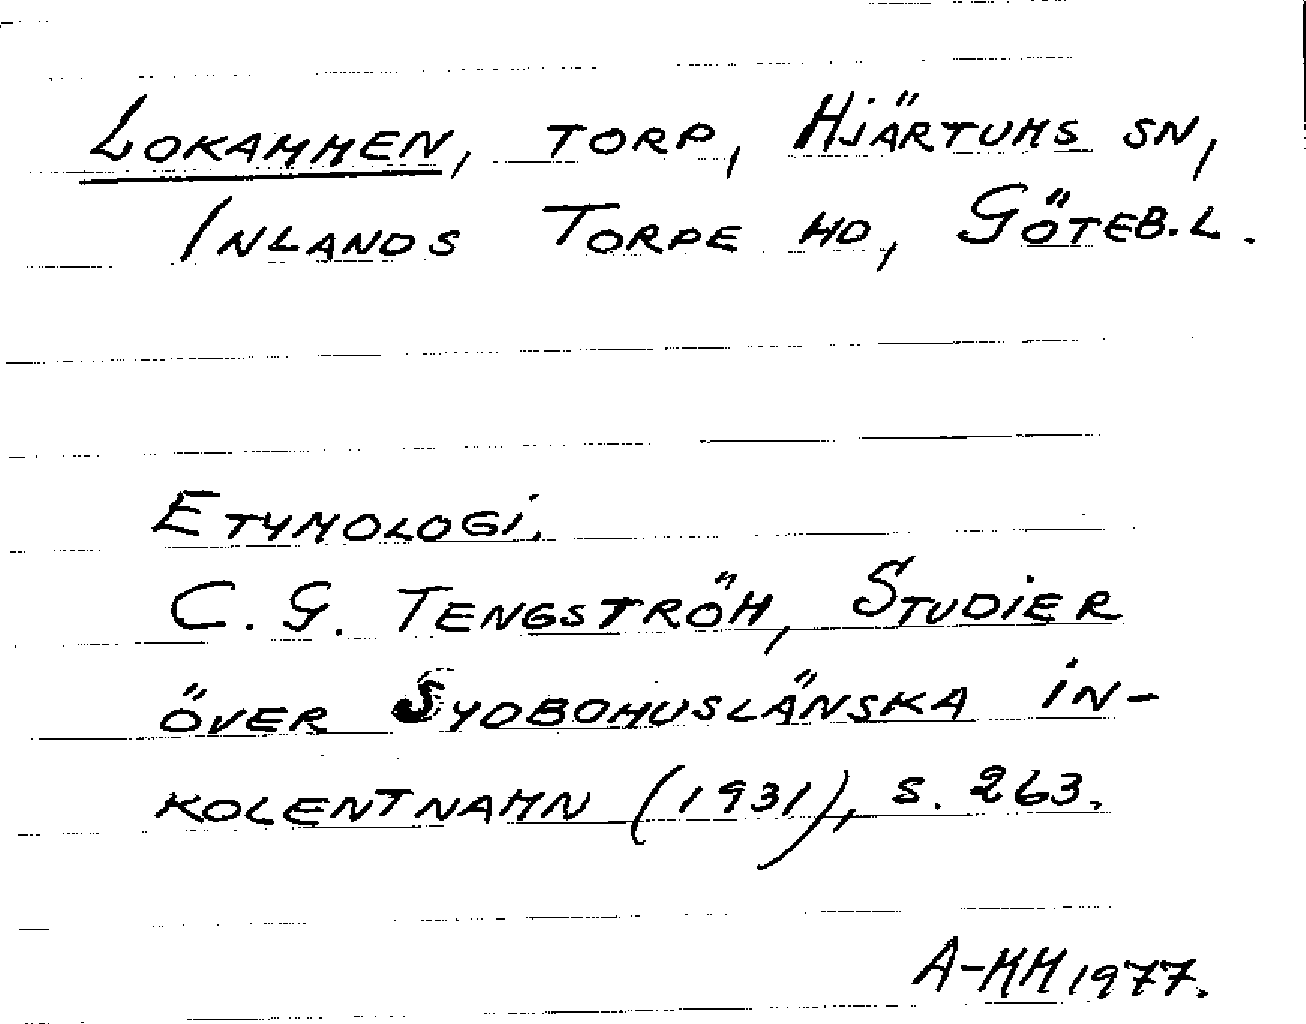 LOKAMMEN, TORP, HJÄRTUMS SN,
INLANDS TORPE HD, GÖTEB.L.
ETYMOLOGI.
C. G. TENGSTRÖM, STUDIER
ÖVER SYDBOHUSLÄNSKA IN-
KOLENTNAMN (1931), S. 263.
A-MM 1977.